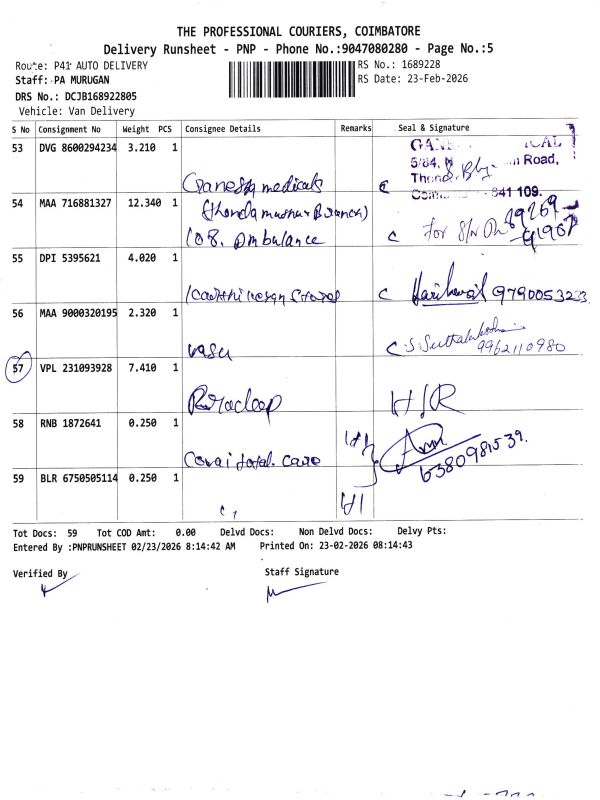 THE PROFESSIONAL COURIERS, COIMBATORE
Delivery Runsheet - PNP - Phone No.:9047080280 - Page No.:5
Route: P41 AUTO DELIVERY
RS No.: 1689228
Staff: PA MURUGAN
RS Date: 23-Feb-2026
DRS No.: DCJB168922805
Vehicle: Van Delivery
S No Consignment No Weight PCS Consignee Details Remarks Seal & Signature
53 DVG 8600294234 3.210 1
Ganesh medicals
5/84, Road,
641 109.
54 MAA 716881327 12.340 1
108. Ambulance
for
55 DPI 5395621 4.020 1
Stores
9790053223
56 MAA 9000320195 2.320 1
vasu
9962110980
57 VPL 231093928 7.410 1
H/R
58 RNB 1872641 0.250 1
Covai total care
6380981539.
59 BLR 6750505114 0.250 1
Tot Docs: 59 Tot COD Amt: 0.00 Delvd Docs: Non Delvd Docs: Delvy Pts:
Entered By :PNPRUNSHEET 02/23/2026 8:14:42 AM Printed On: 23-02-2026 08:14:43
Verified By Staff Signature